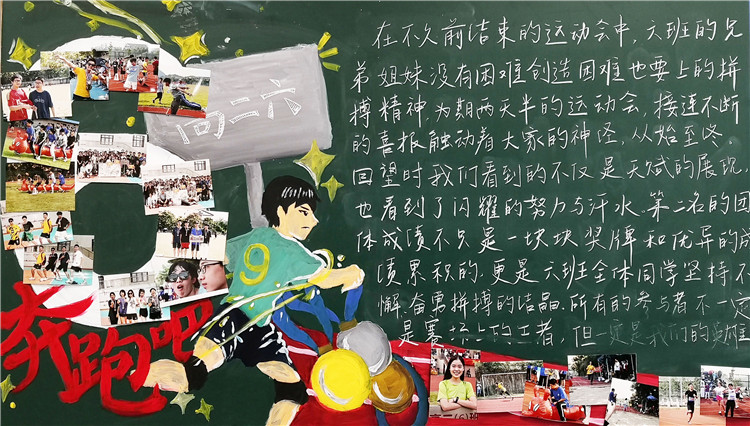 在不久前结束的运动会中,六班的兄
弟姐妹没有困难创造困难也要上的拼
搏精神,为期两天半的运动会,接连不断
的喜报触动着大家的神经,从始至终.
回望时我们看到的不仅是天赋的展现,
也看到了闪耀的努力与汗水.第二名的团
体成绩不只是一块块奖牌和优异的成
绩累积的.更是六班全体同学坚持不
懈、奋勇拼搏的结晶.所有的参与者不一定
是赛场上的王者,但一定是我们的英雄
向二六
9
奔跑吧